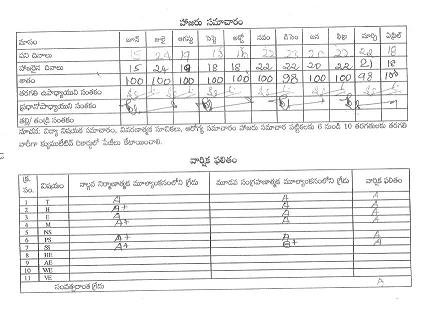 హాజరు సమాచారం
మాసం జూన్ జులై ఆగష్టు సెప్టె అక్టో నవం డిసెం జన ఫిబ్ర మార్చి ఏప్రిల్
పని దినాలు 15 24 19 18 18 22 23 20 22 22 18
హాజరైన దినాలు 15 24 19 18 18 22 22 20 22 21 18
శాతం 100 100 100 100 100 100 98 100 100 98 100
తరగతి ఉపాధ్యాయుని సంతకం
ప్రధానోపాధ్యాయుని సంతకం
తల్లి/ తండ్రి సంతకం
సూచన: విద్యా విషయక సమాచారం, వివరణాత్మక సూచికలు, ఆరోగ్య సమాచారం హాజరు సమాచార పట్టికలకు 6 నుండి 10 తరగతులకు తరగతి
వారీగా క్యుములేటివ్ రికార్డులో పేజీలు కేటాయించాలి.
వార్షిక ఫలితం
క్ర. సం. విషయం నాల్గవ నిర్మాణాత్మక మూల్యాంకనంలోని గ్రేడు మూడవ సంగ్రహణాత్మక మూల్యాంకనంలోని గ్రేడు వార్షిక ఫలితం
1 T A A A
2 H A+ A A
3 E A A A
4 M A+ A A
5 NS
6 PS A+ A A
7 SS A+ B+ A
8 HE
9 AE
10 WE
11 VE
సంవత్సరాంత గ్రేడు A